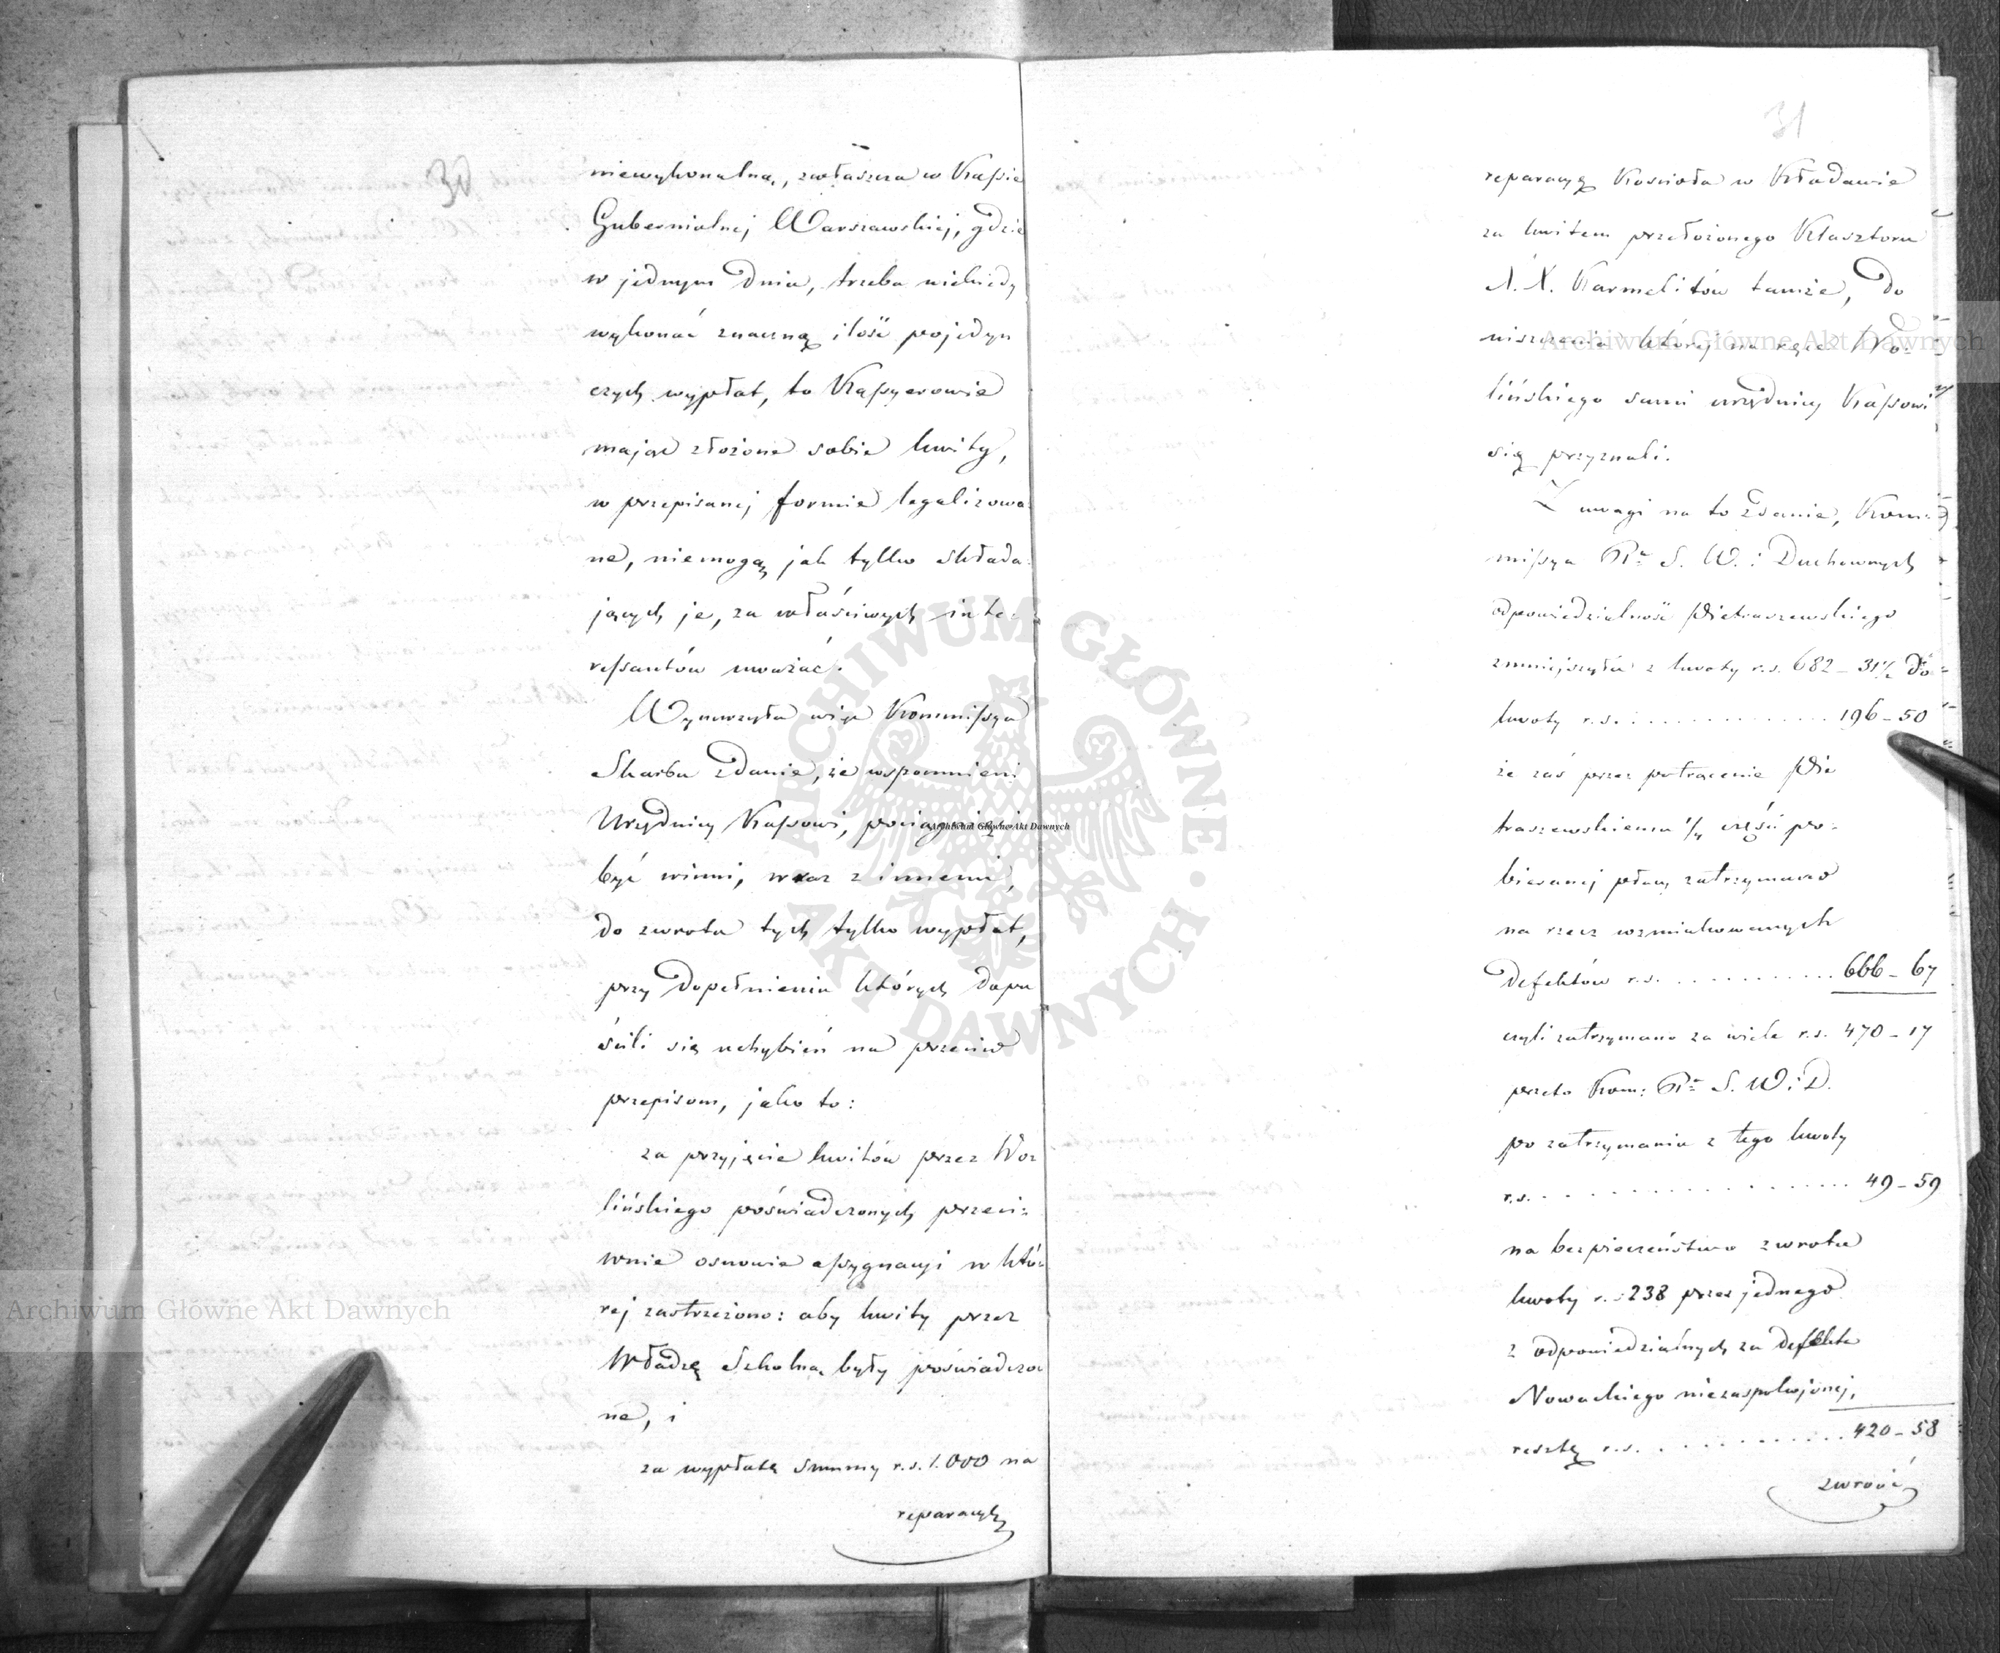 30
niewykonalną, zwłaszcza w Kassie
Gubernialnej Warszawskiej, gdzie
w jednym dniu, trzeba niekiedy
wykonać znaczną ilość pojedyn
czych wypłat, to Kassyerowie
mając złożone sobie kwity,
w przepisanej formie legalizowa
ne, niemogą jak tylko składa
jących je, za właściwych inte-
ressantów uważać.
Wynurzyła więc Kommissya
Skarbu zdanie, że wspomnieni
Urzędnicy Kassowi, pociągnięci
być winni, wraz z innemi,
do zwrotu tych tylko wypłat,
przy dopełnieniu których dopu
ścili się uchybień na przeciw
przepisom, jako to:
za przyjęcie kwitów przez Wo
lińskiego poświadczonych przeci-
wnie osnowie assygnacyi w któ-
rej zastrzeżono: aby kwity przez
Władzę Szkolną były poświadczo
ne, i
za wypłatę summy r.s. 1.000 na
reparacyę
31
reparacyę Kościoła w Kłodawie
za kwitem przełożonego Klasztoru
X.X. Karmelitów tamże, do
niszczenia której na ręce Wo-
lińskiego sami urzędnicy Kassowi
się przyznali.
Z uwagi na to zdanie, Kom-
missya Rz. S. W. i Duchownych
odpowiedzialność Pietraszewskiego
zmniejszyła z kwoty r.s. 682 – 31½ do
kwoty r.s. . . . . . . . . . . . . . 196 – 50
że zaś przez potrącenie Pie
traszewskiemu ¼ części po-
bieranej płacy zatrzymano
na rzecz wzmiankowanych
Defektów r.s. . . . . . . . . . . . 666 – 67
czyli zatrzymano za wiele r.s. 470 – 17
przeto Kom: Rz. S. W. i D.
po zatrzymaniu z tego kwoty
r.s. . . . . . . . . . . . . . . . . 49 – 59
na bezpieczeństwo zwrotu
kwoty r.s. 238 przez jednego
z odpowiedzialnych za defekta
Nowackiego niezaspokojonej,
resztę r.s. . . . . . . . . . . . 420 – 58
zwrócić
Archiwum Główne Akt Dawnych
Archiwum Główne Akt Dawnych
Archiwum Główne Akt Dawnych
ARCHIWUM GŁÓWNE • AKT DAWNYCH •